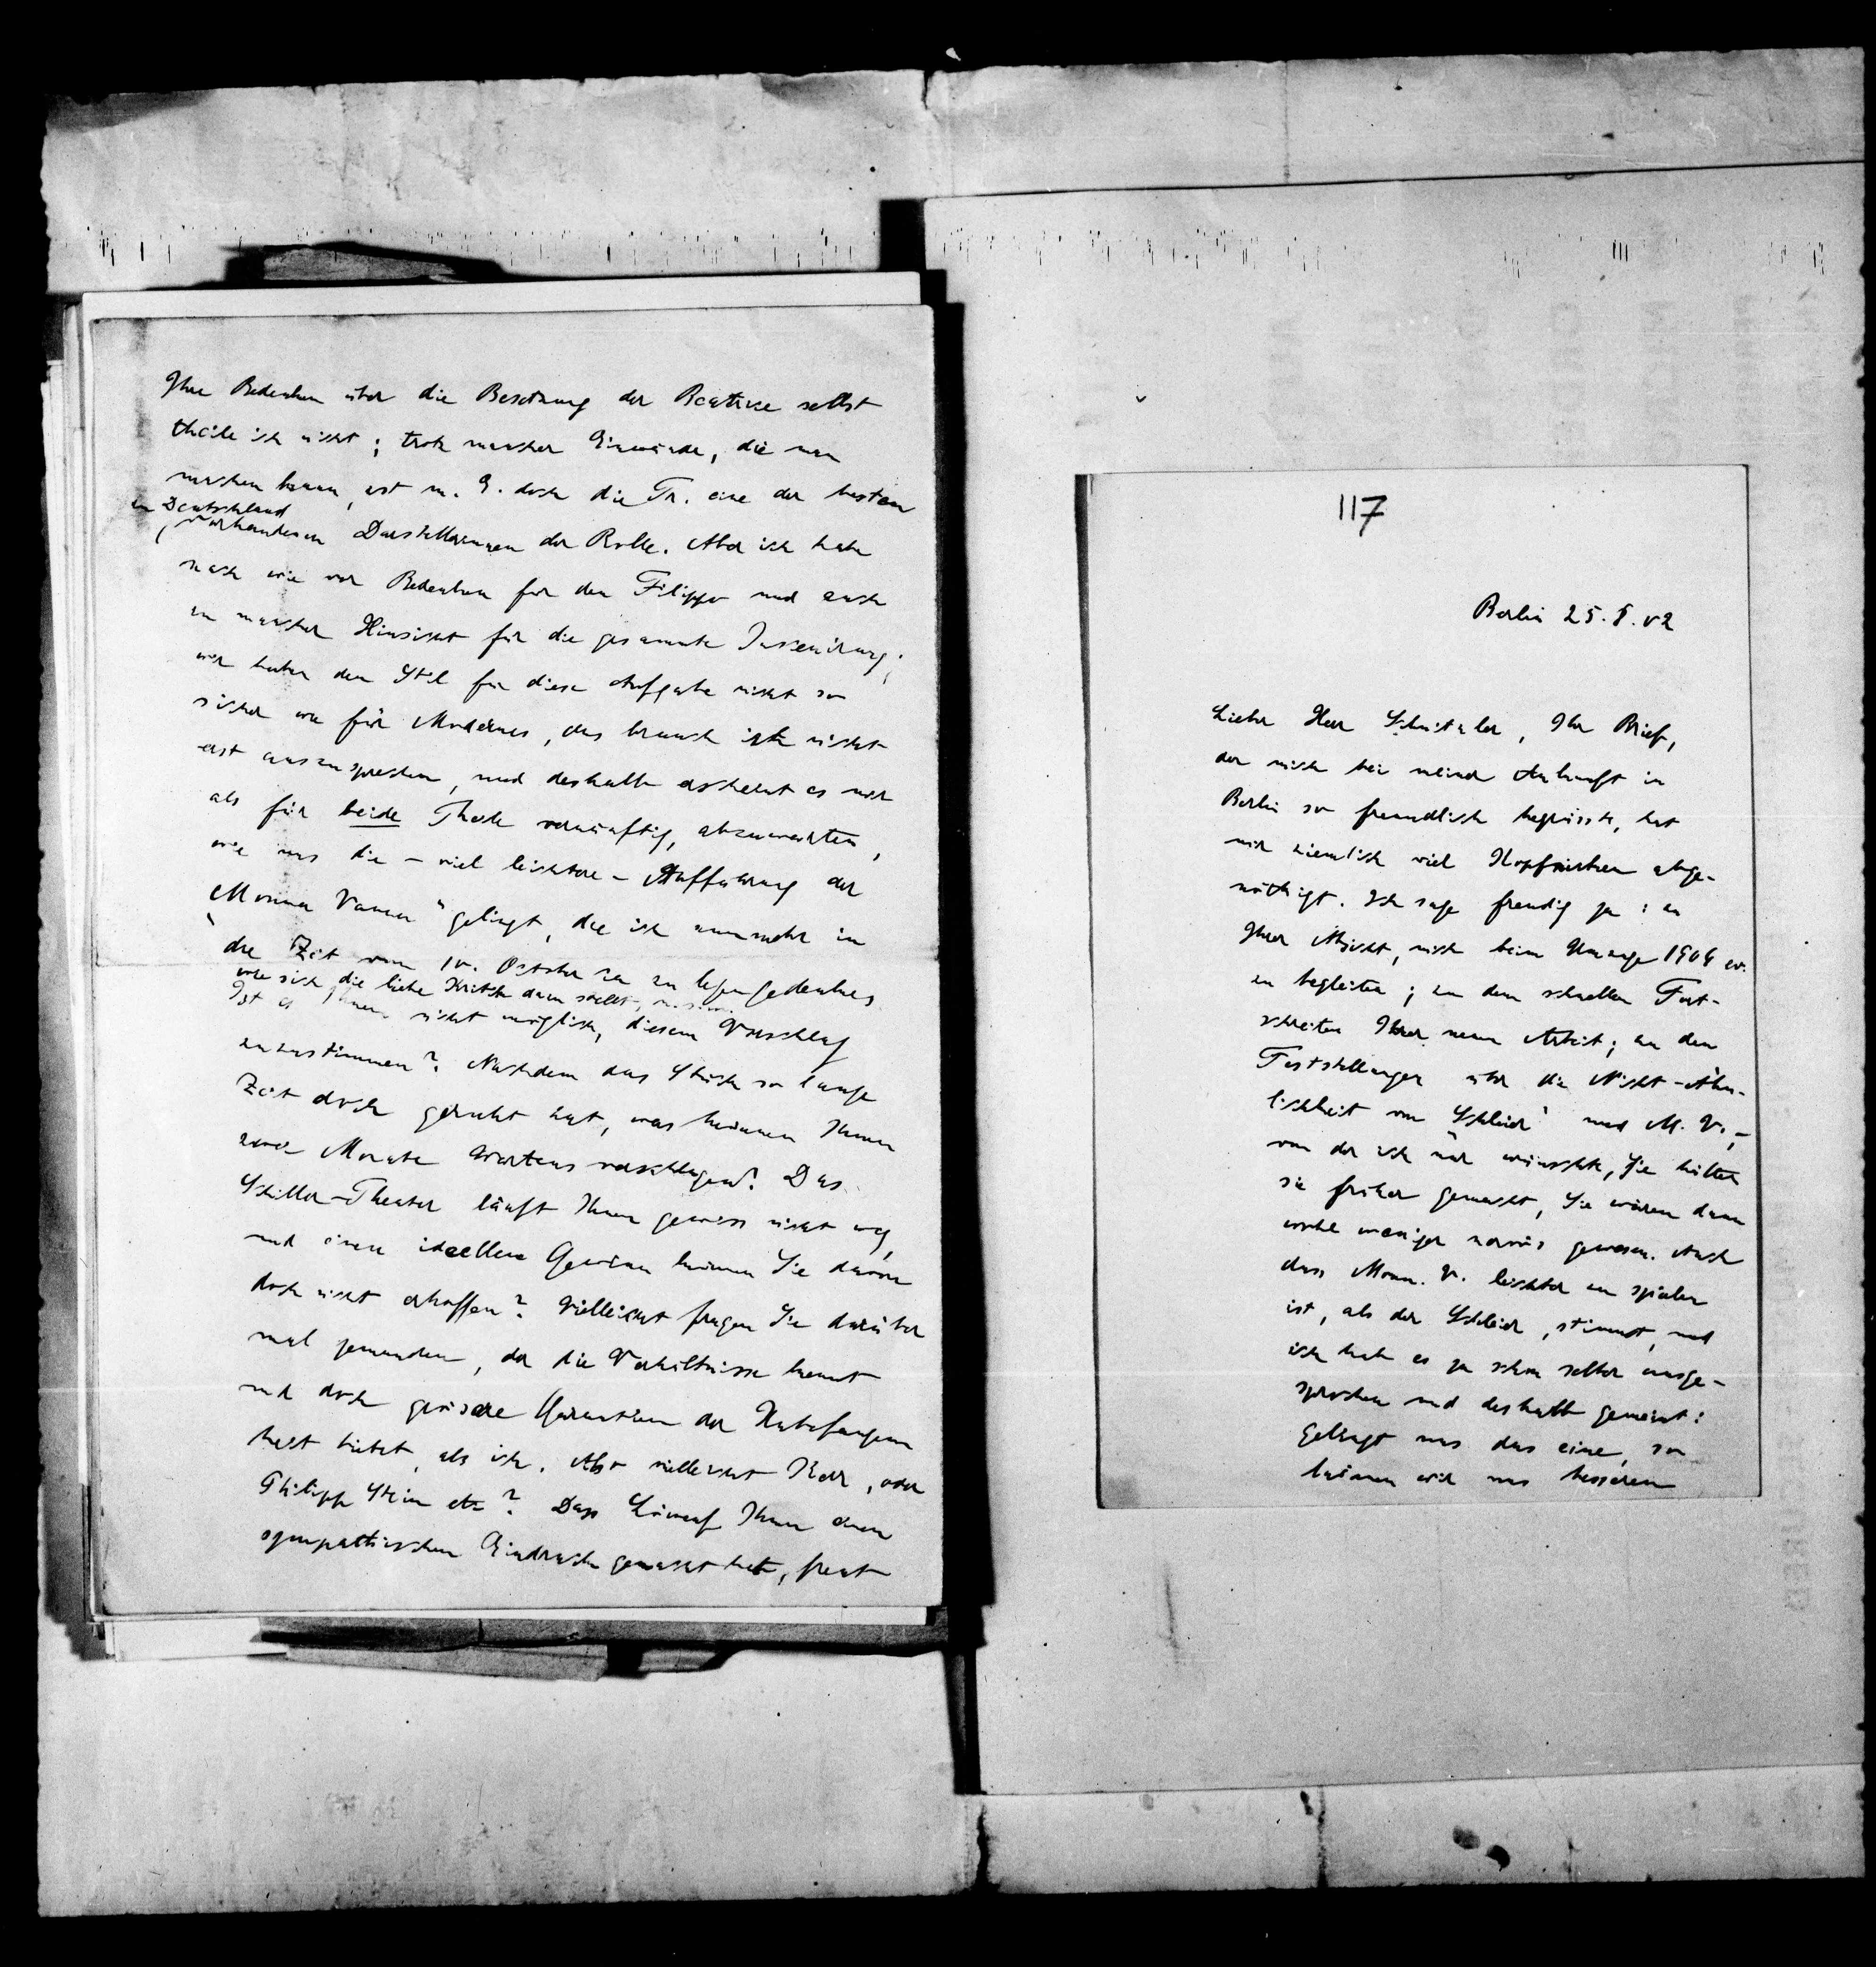 Ihre Bedenken über die Besetzung der Beatrice selbst
theile ich nicht; trotz mancher Einwände, die man
machen kann, ist m. E. doch die Tr. eine der besten
in Deutschland
vorhandenen Darstellerinnen der Rolle. Aber ich habe
nach wie vor Bedenken für den Filippo und auch
in mancher Hinsicht für die gesammte Inscenirung;
wir haben den Stil für diese Aufgabe nicht so
sicher wie für Modernes, das brauch ich nicht
erst auszusprechen, und deshalb erscheint es mir
als für beide Theile vernünftig, abzuwarten,
wie uns die – viel leichtere – Aufführung der
„Monna Vanna“ gelingt, die ich nunmehr in
die Zeit vom 10. October an zu legen gedenke,
wie sich die liebe Kritik dazu stellt, u. s. w.
Ist es Ihnen nicht möglich, diesem Vorschlag
zuzustimmen? Nachdem das Stück so lange
Zeit doch geruht hat, was können Ihnen
zwei Monate Wartens verschlagen? Das
Schiller-Theater läuft Ihnen gewiss nicht weg,
und einen ideellen Gewinn können Sie davon
doch nicht erhoffen? Vielleicht fragen Sie darüber
mal jemanden, der die Verhältnisse kennt
und doch grössere Garantien der Unbefangen
heit bietet, als ich. Also vielleicht Kerr, oder
Philipp Stein etc? Dass Ihnen einen
sympathischen Eindruck gemacht hat, freut
117
Berlin 25. 8. 02
Lieber Herr Schnitzler, Ihr Brief,
der mich bei meiner Ankunft in
Berlin so freundlich begrüsste, hat
mir ziemlich viel Kopfnicken abge-
nöthigt. Ich sage freudig ja: zu
Ihrer Absicht, mich beim Umzuge 1904 ev.
zu begleiten; zu dem schnellen Fort-
schreiten Ihrer neuen Arbeit; zu den
Feststellungen über die Nicht-Ähn-
lichkeit von Schleier und M. V. –,
von der ich nur wünschte, Sie hätten
sie früher gemacht, Sie wären dann
wohl weniger nervös gewesen. Auch
dass Monn. V. leichter zu spielen
ist, als der Schleier, stimmt, und
ich hab es ja schon selber ausge-
sprochen und deshalb gemeint:
Gelingt uns das eine, so
können wir uns besseren